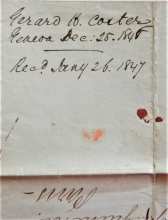 Gerard H. Coster
Geneva Dec: 25. 1846
Recd Jany 26. 1847
Paris